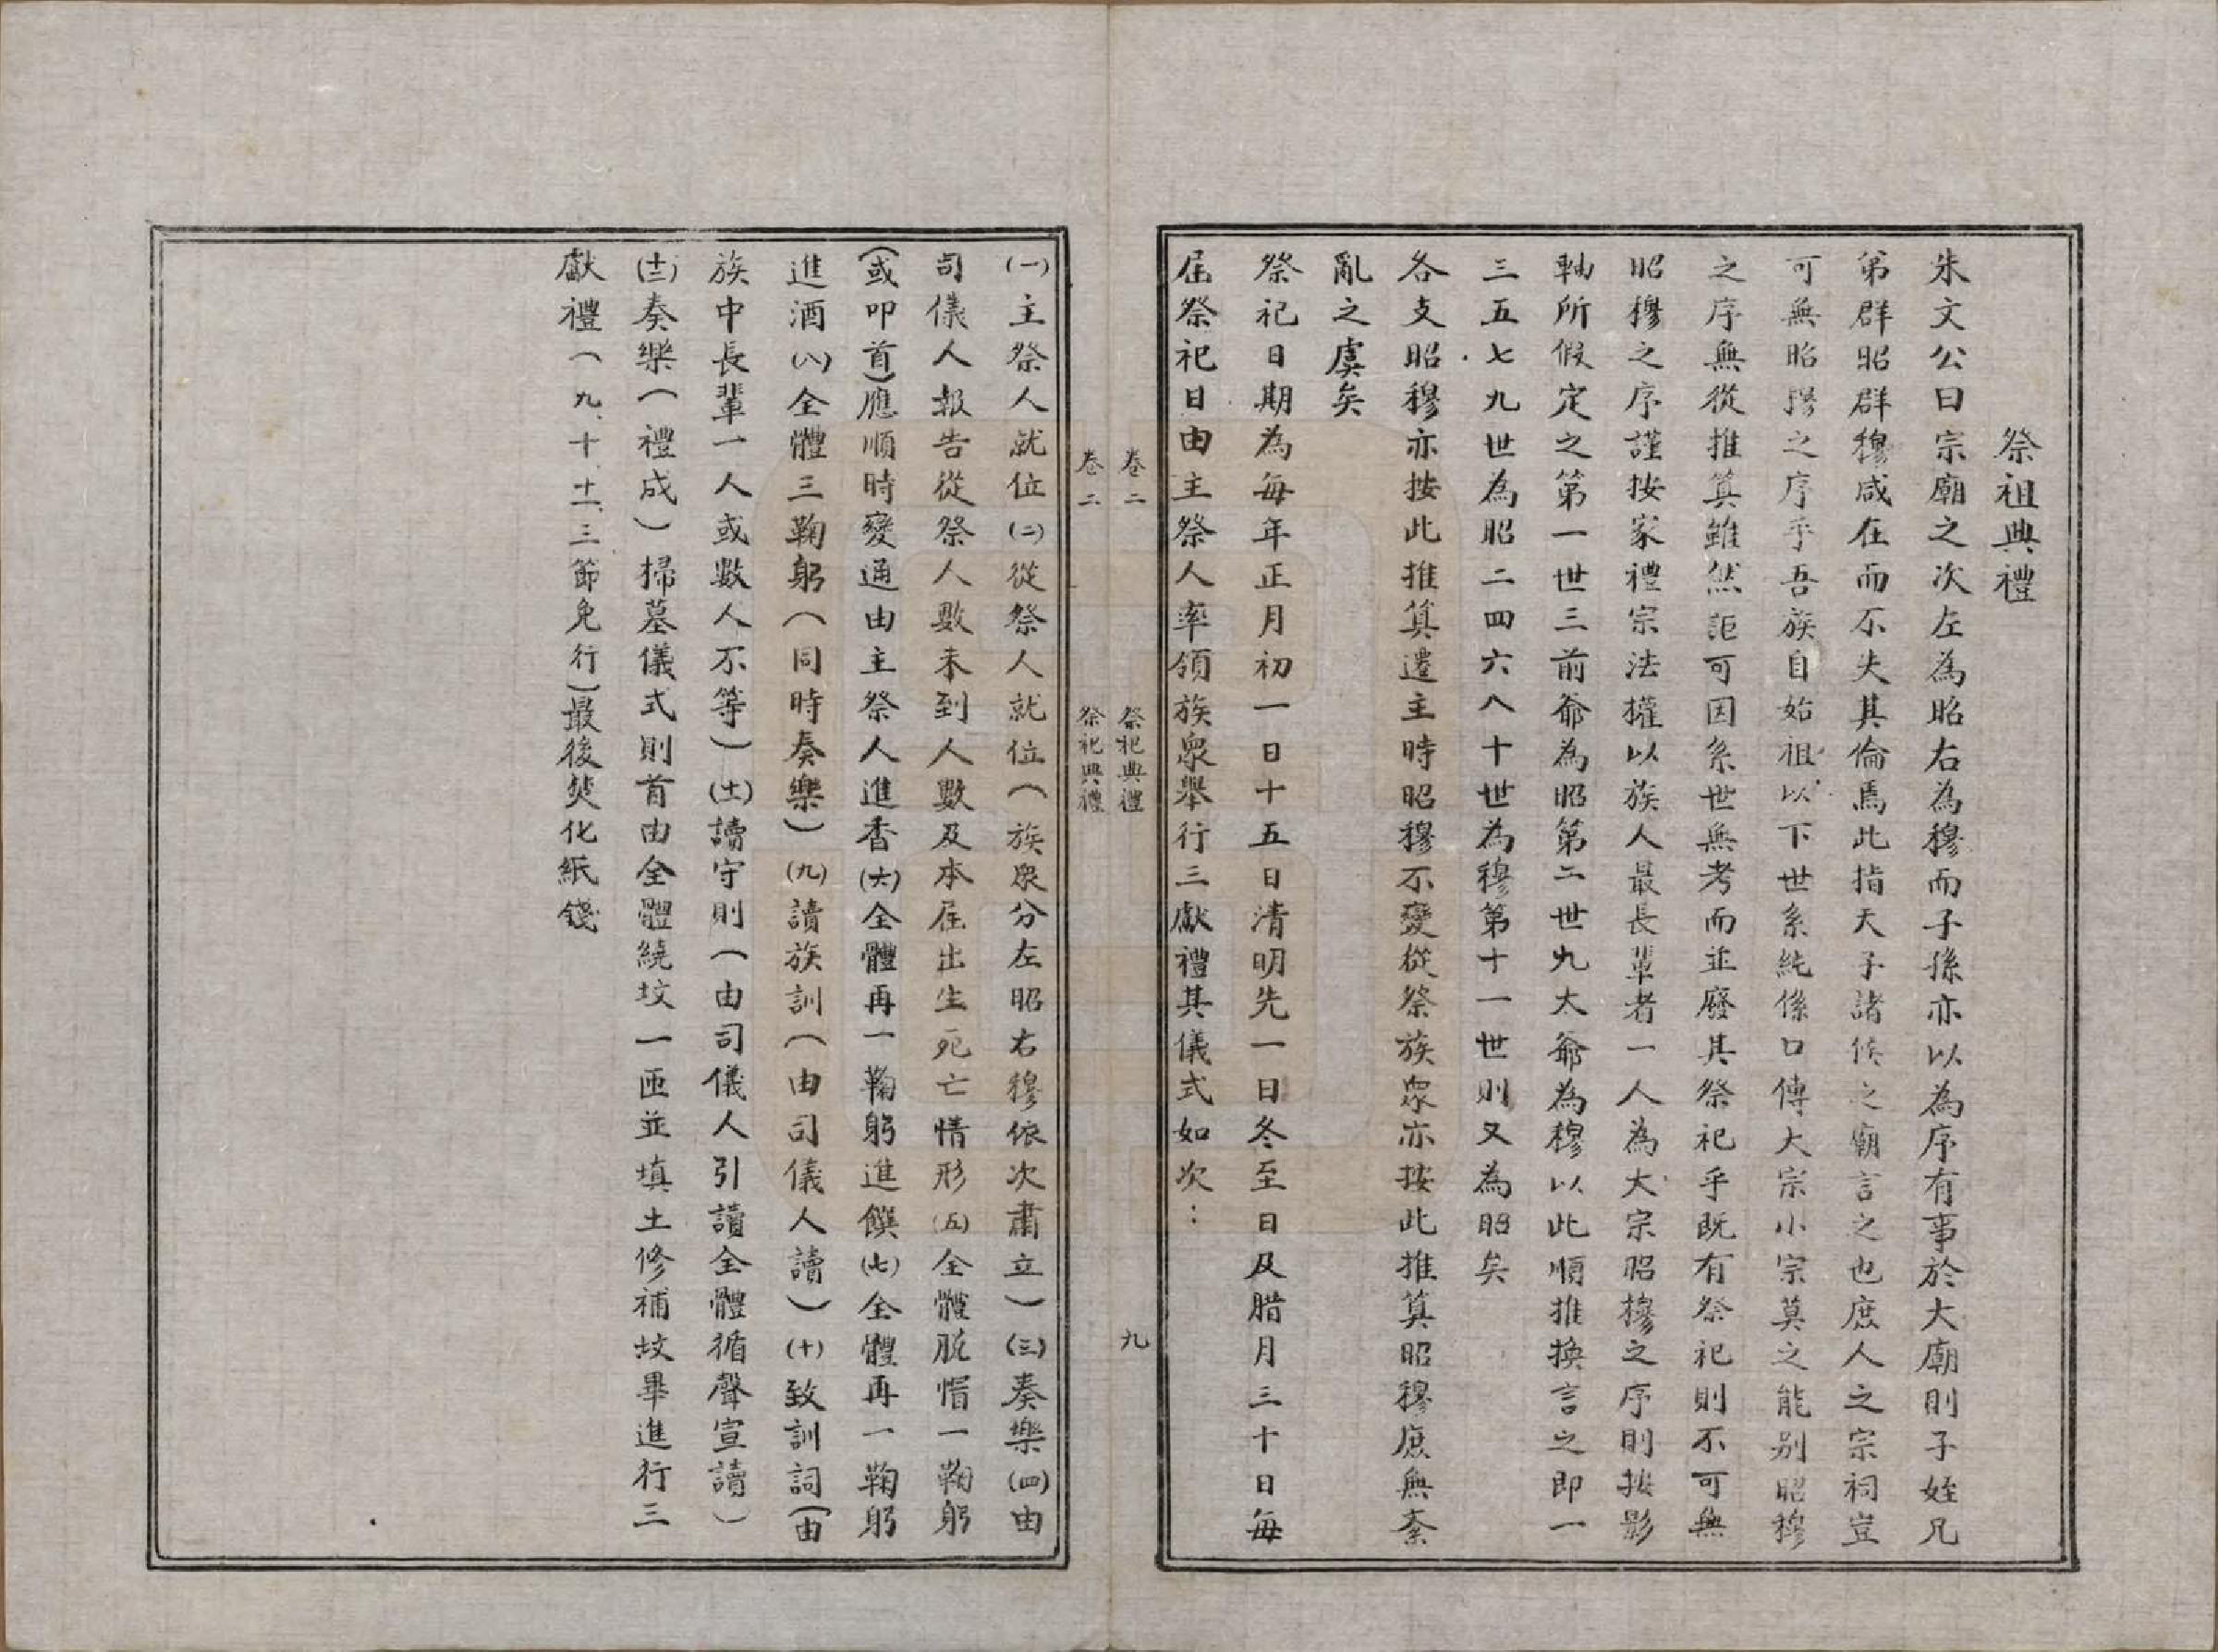 祭祖典禮
朱文公曰宗廟之次左為昭右為穆而子孫亦以為序有事於大廟則子姪兄
弟群昭群穆咸在而不失其倫焉此指天子諸侯之廟言之也庶人之宗祠豈
可無昭穆之序乎吾族自始祖以下世系純係口傳大宗小宗莫之能別昭穆
之序無從推算雖然詎可因系世無考而並廢其祭祀乎既有祭祀則不可無
昭穆之序謹按家禮宗法權以族人最長輩者一人為大宗昭穆之序則按影
軸所假定之第一世三前爺為昭第二世九大爺為穆以此順推換言之即一
三五七九世為昭二四六八十世為穆第十一世則又為昭矣
各支昭穆亦按此推算遷主時昭穆不變從祭族眾亦按此推算昭穆庶無紊
亂之虞矣
祭祀日期為每年正月初一日十五日清明先一日冬至日及腊月三十日每
屆祭祀日由主祭人率領族眾舉行三獻禮其儀式如次：
卷二 祭祀典禮 九
卷二 祭祀典禮
(一)主祭人就位(二)從祭人就位（族眾分左昭右穆依次肅立）(三)奏樂(四)由
司儀人報告從祭人數未到人數及本屆出生死亡情形(五)全體脫帽一鞠躬
(或叩首)應順時變通由主祭人進香(六)全體再一鞠躬進饌(七)全體再一鞠躬
進酒(八)全體三鞠躬（同時奏樂）(九)讀族訓（由司儀人讀）(十)致訓詞(由
族中長輩一人或數人不等）(十一)讀守則（由司儀人引讀全體循聲宣讀）
(十二)奏樂（禮成）掃墓儀式則首由全體繞坟一匝並填土修補坟畢進行三
獻禮（九、十、十一、三節免行)最後焚化紙錢